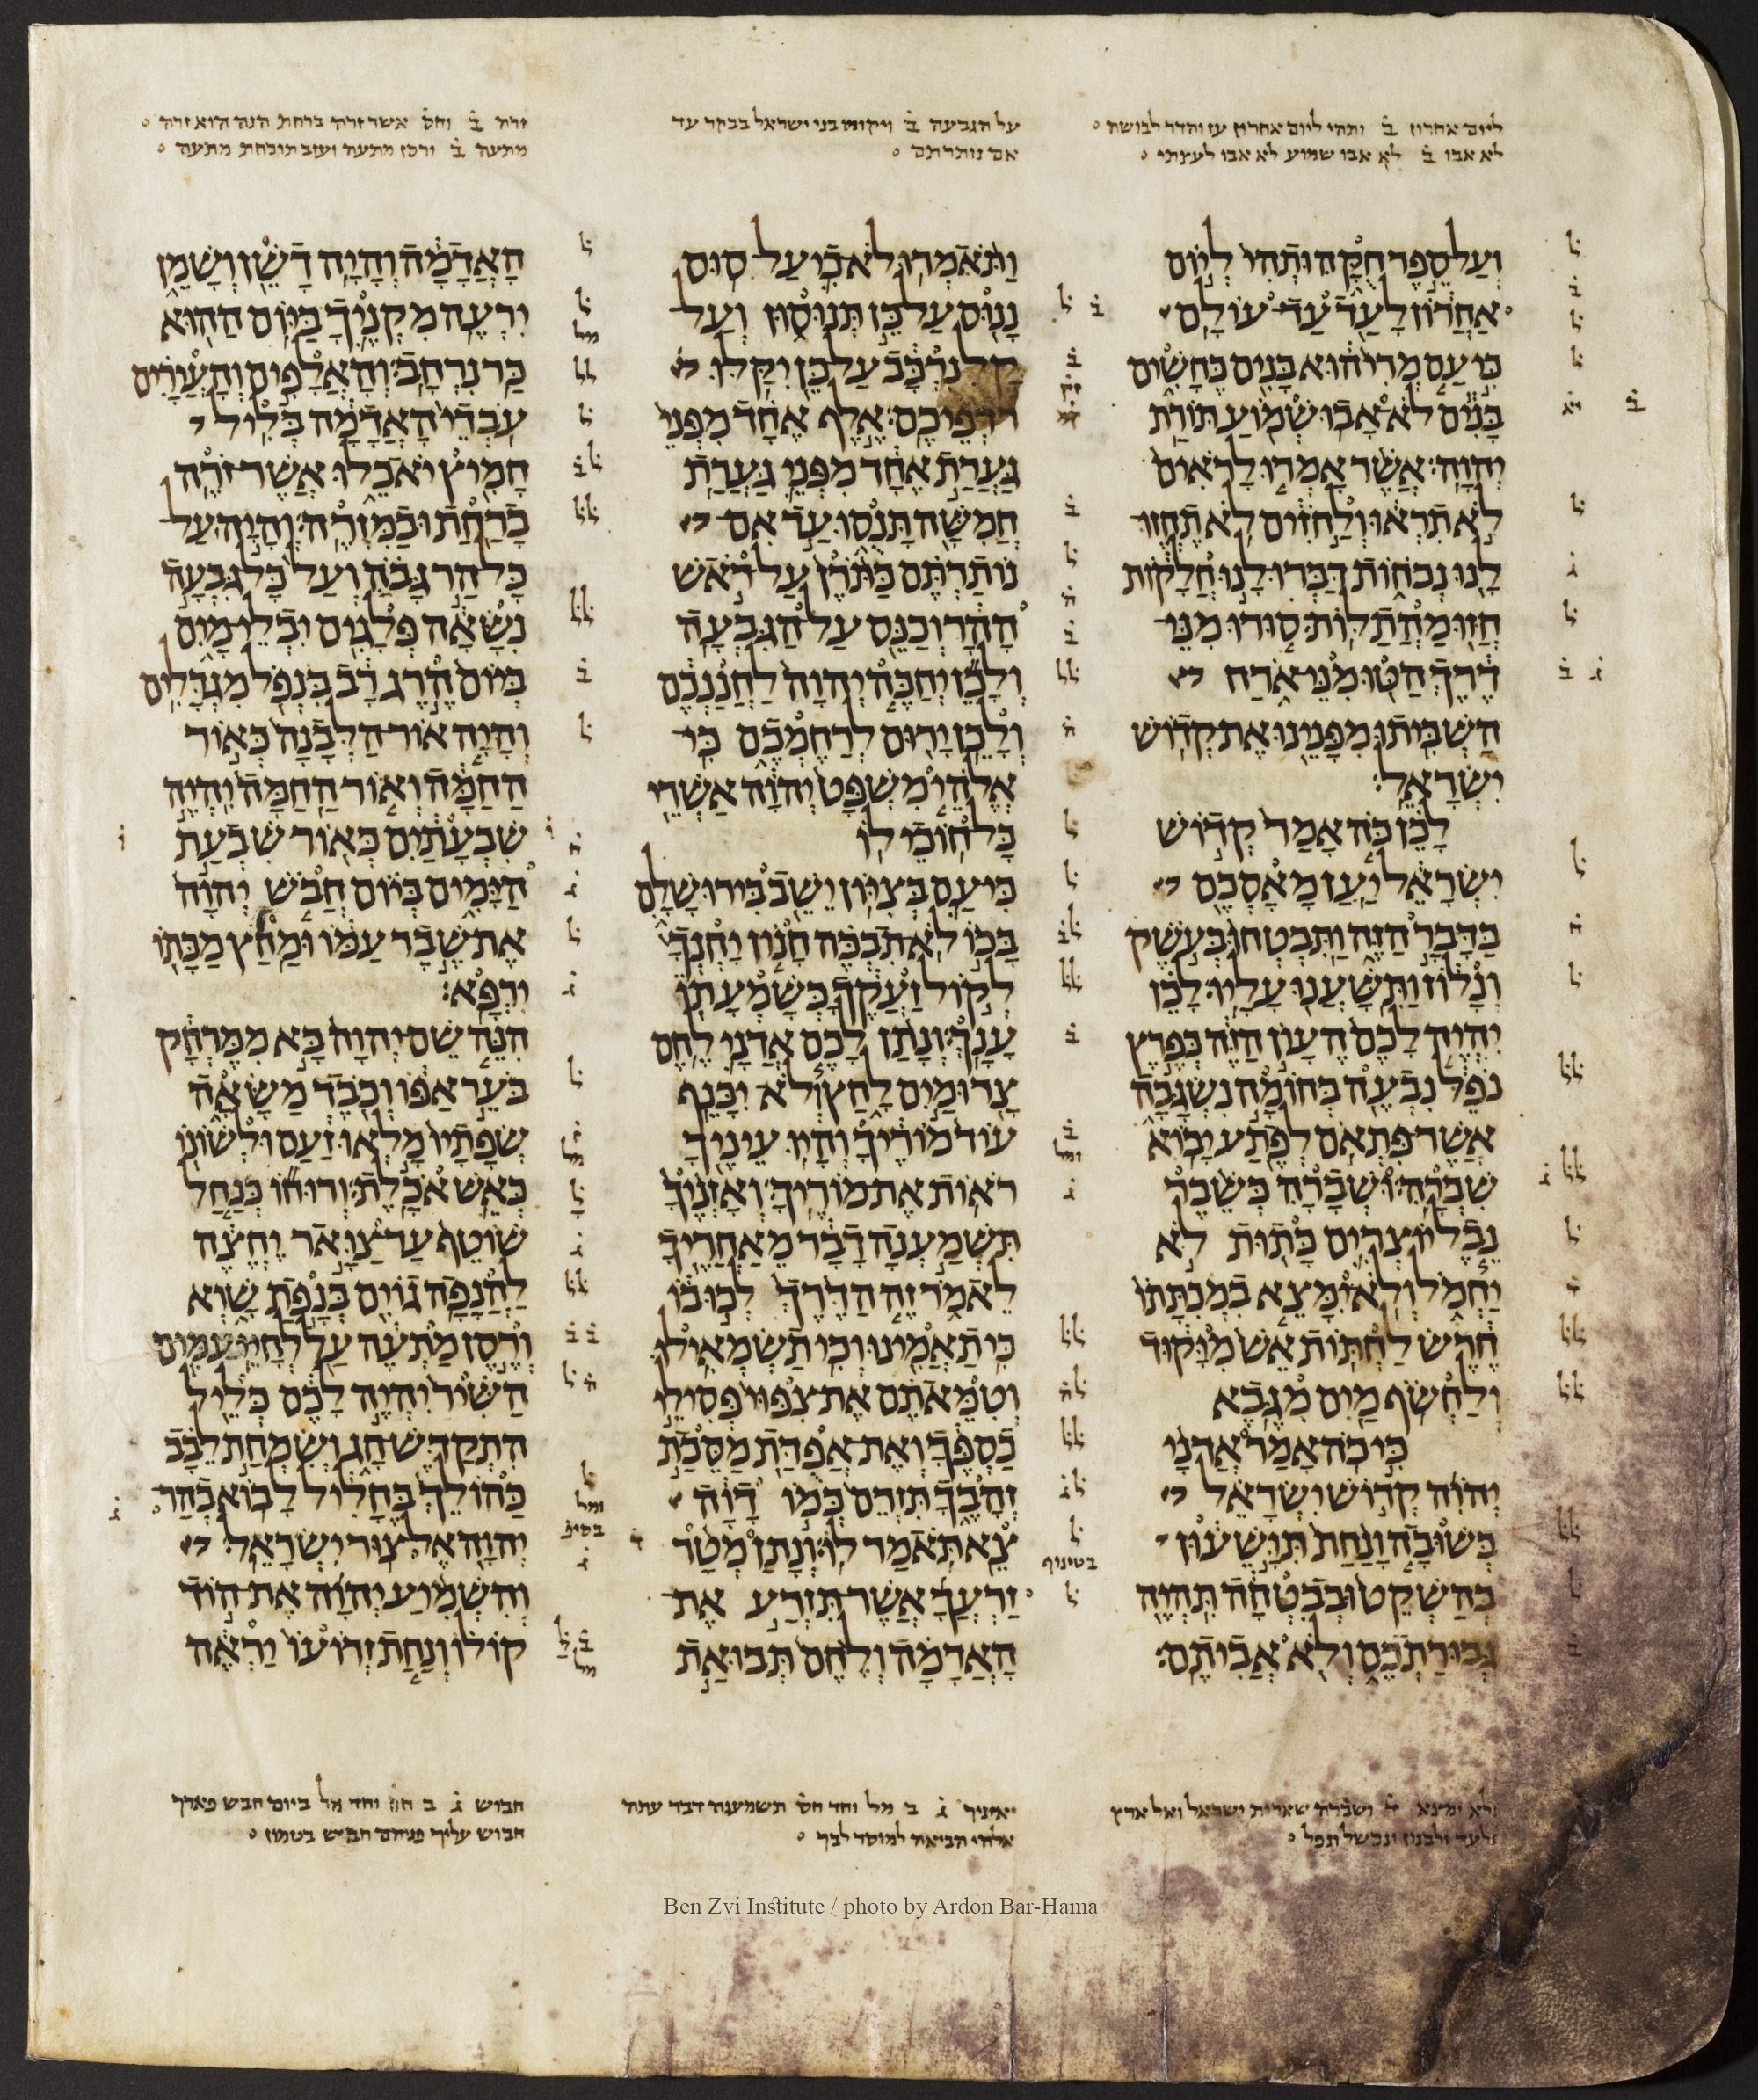 ליום אחרון ב̇ ותהי ליום אחרון עז והדר לבושה
לא אבו ב̇ לא אבו שמוע לא אבו לעצתי
על הגבעה ב̇ ויקומו בני ישראל בבקר עד
אם נותרתם
זרה ב̇ וחס̇ אשר זרה ברחת הנה הוא זרה
מתעה ב̇ ורסן מתעה ועזב תוכחת מתעה
וְעַל סֵפֶר חֻקָּהּ וּתְהִי לְיוֹם
אַחֲרוֹן לָעַד עַד עוֹלָם
כִּי עַם מְרִי הוּא בָּנִים כֶּחָשִׁים
בָּנִים לֹא אָבוּ שְׁמוֹעַ תּוֹרַת
יְהוָה׃ אֲשֶׁר אָמְרוּ לָרֹאִים
לֹא תִרְאוּ וְלַחֹזִים לֹא תֶחֱזוּ
לָנוּ נְכֹחוֹת דַּבְּרוּ לָנוּ חֲלָקוֹת
חֲזוּ מַהֲתַלּוֹת׃ סוּרוּ מִנֵּי
דֶרֶךְ הַטּוּ מִנֵּי אֹרַח
הַשְׁבִּיתוּ מִפָּנֵינוּ אֶת קְדוֹשׁ
יִשְׂרָאֵל׃
לָכֵן כֹּה אָמַר קְדוֹשׁ
יִשְׂרָאֵל יַעַן מָאָסְכֶם
בַּדָּבָר הַזֶּה וַתִּבְטְחוּ בְּעֹשֶׁק
וְנָלוֹז וַתִּשָּׁעֲנוּ עָלָיו׃ לָכֵן
יִהְיֶה לָכֶם הֶעָוֺן הַזֶּה כְּפֶרֶץ
נֹפֵל נִבְעֶה בְּחוֹמָה נִשְׂגָּבָה
אֲשֶׁר פִּתְאֹם לְפֶתַע יָבוֹא
שִׁבְרָהּ׃ וּשְׁבָרָהּ כְּשֵׁבֶר
נֵבֶל יוֹצְרִים כָּתוּת לֹא
יַחְמֹל וְלֹא יִמָּצֵא בִמְכִתָּתוֹ
חֶרֶשׂ לַחְתּוֹת אֵשׁ מִיָּקוּד
וְלַחְשֹׂף מַיִם מִגֶּבֶא
כִּי כֹה אָמַר אֲדֹנָי
יְהוִה קְדוֹשׁ יִשְׂרָאֵל
בְּשׁוּבָה וָנַחַת תִּוָּשֵׁעוּן
בְּהַשְׁקֵט וּבְבִטְחָה תִּהְיֶה
גְּבוּרַתְכֶם וְלֹא אֲבִיתֶם׃
וַתֹּאמְרוּ לֹא כִי עַל סוּס
נָנוּס עַל כֵּן תְּנוּסוּן וְעַל
קַל נִרְכָּב עַל כֵּן יִקַּלּוּ
רֹדְפֵיכֶם׃ אֶלֶף אֶחָד מִפְּנֵי
גַּעֲרַת אֶחָד מִפְּנֵי גַּעֲרַת
חֲמִשָּׁה תָּנֻסוּ עַד אִם
נוֹתַרְתֶּם כַּתֹּרֶן עַל רֹאשׁ
הָהָר וְכַנֵּס עַל הַגִּבְעָה
וְלָכֵן יְחַכֶּה יְהוָה לַחֲנַנְכֶם
וְלָכֵן יָרוּם לְרַחֶמְכֶם כִּי
אֱלֹהֵי מִשְׁפָּט יְהוָה אַשְׁרֵי
כָּל חוֹכֵי לוֹ
כִּי עַם בְּצִיּוֹן יֵשֵׁב בִּירוּשָׁלִָם
בָּכוֹ לֹא תִבְכֶּה חָנוֹן יָחְנְךָ
לְקוֹל זַעֲקֶךָ כְּשָׁמְעָתוֹ
עָנָךְ׃ וְנָתַן לָכֶם אֲדֹנָי לֶחֶם
צָר וּמַיִם לָחַץ וְלֹא יִכָּנֵף
עוֹד מוֹרֶיךָ וְהָיוּ עֵינֶיךָ
רֹאוֹת אֶת מוֹרֶיךָ׃ וְאָזְנֶיךָ
תִּשְׁמַעְנָה דָבָר מֵאַחֲרֶיךָ
לֵאמֹר זֶה הַדֶּרֶךְ לְכוּ בוֹ
כִּי תַאֲמִינוּ וְכִי תַשְׂמְאִילוּ׃
וְטִמֵּאתֶם אֶת צִפּוּי פְּסִילֵי
כַסְפֶּךָ וְאֶת אֲפֻדַּת מַסֵּכַת
זְהָבֶךָ תִּזְרֵם כְּמוֹ דָוָה
צֵא תֹּאמַר לוֹ׃ וְנָתַן מְטַר
זַרְעֲךָ אֲשֶׁר תִּזְרַע אֶת
הָאֲדָמָה וְלֶחֶם תְּבוּאַת
הָאֲדָמָה וְהָיָה דָשֵׁן וְשָׁמֵן
יִרְעֶה מִקְנֶיךָ בַּיּוֹם הַהוּא
כַּר נִרְחָב׃ וְהָאֲלָפִים וְהָעֲיָרִים
עֹבְדֵי הָאֲדָמָה בְּלִיל
חָמִיץ יֹאכֵלוּ אֲשֶׁר זֹרֶה
בָרַחַת וּבַמִּזְרֶה׃ וְהָיָה עַל
כָּל הַר גָּבֹהַּ וְעַל כָּל גִּבְעָה
נִשָּׂאָה פְּלָגִים יִבְלֵי מָיִם
בְּיוֹם הֶרֶג רָב בִּנְפֹל מִגְדָּלִים
וְהָיָה אוֹר הַלְּבָנָה כְּאוֹר
הַחַמָּה וְאוֹר הַחַמָּה יִהְיֶה
שִׁבְעָתַיִם כְּאוֹר שִׁבְעַת
הַיָּמִים בְּיוֹם חֲבֹשׁ יְהוָה
אֶת שֶׁבֶר עַמּוֹ וּמַחַץ מַכָּתוֹ
יִרְפָּא׃
הִנֵּה שֵׁם יְהוָה בָּא מִמֶּרְחָק
בֹּעֵר אַפּוֹ וְכֹבֶד מַשָּׂאָה
שְׂפָתָיו מָלְאוּ זַעַם וּלְשׁוֹנוֹ
כְּאֵשׁ אֹכָלֶת׃ וְרוּחוֹ כְּנַחַל
שׁוֹטֵף עַד צַוָּאר יֶחֱצֶה
לַהֲנָפָה גוֹיִם בְּנָפַת שָׁוְא
וְרֶסֶן מַתְעֶה עַל לְחָיֵי עַמִּים
הַשִּׁיר יִהְיֶה לָכֶם כְּלֵיל
הִתְקַדֶּשׁ חָג וְשִׂמְחַת לֵבָב
כַּהוֹלֵךְ בֶּחָלִיל לָבוֹא בְהַר
יְהוָה אֶל צוּר יִשְׂרָאֵל
וְהִשְׁמִיעַ יְהוָה אֶת הוֹד
קוֹלוֹ וְנַחַת זְרוֹעוֹ יַרְאֶה
ולא ימצא ושברת שארית ישראל ואל ארץ
ונכשל ונפל
ואזניך ג̇ ב מל וחד חס̇ תשמענה דבר עתה
אלהי הביאה למוסר לבך
חבוש ג̇ ב חס̇ וחד מל ביום חבש פארך
חבוש עליך פניהם חבוש בטמון
Ben Zvi Institute / photo by Ardon Bar-Hama